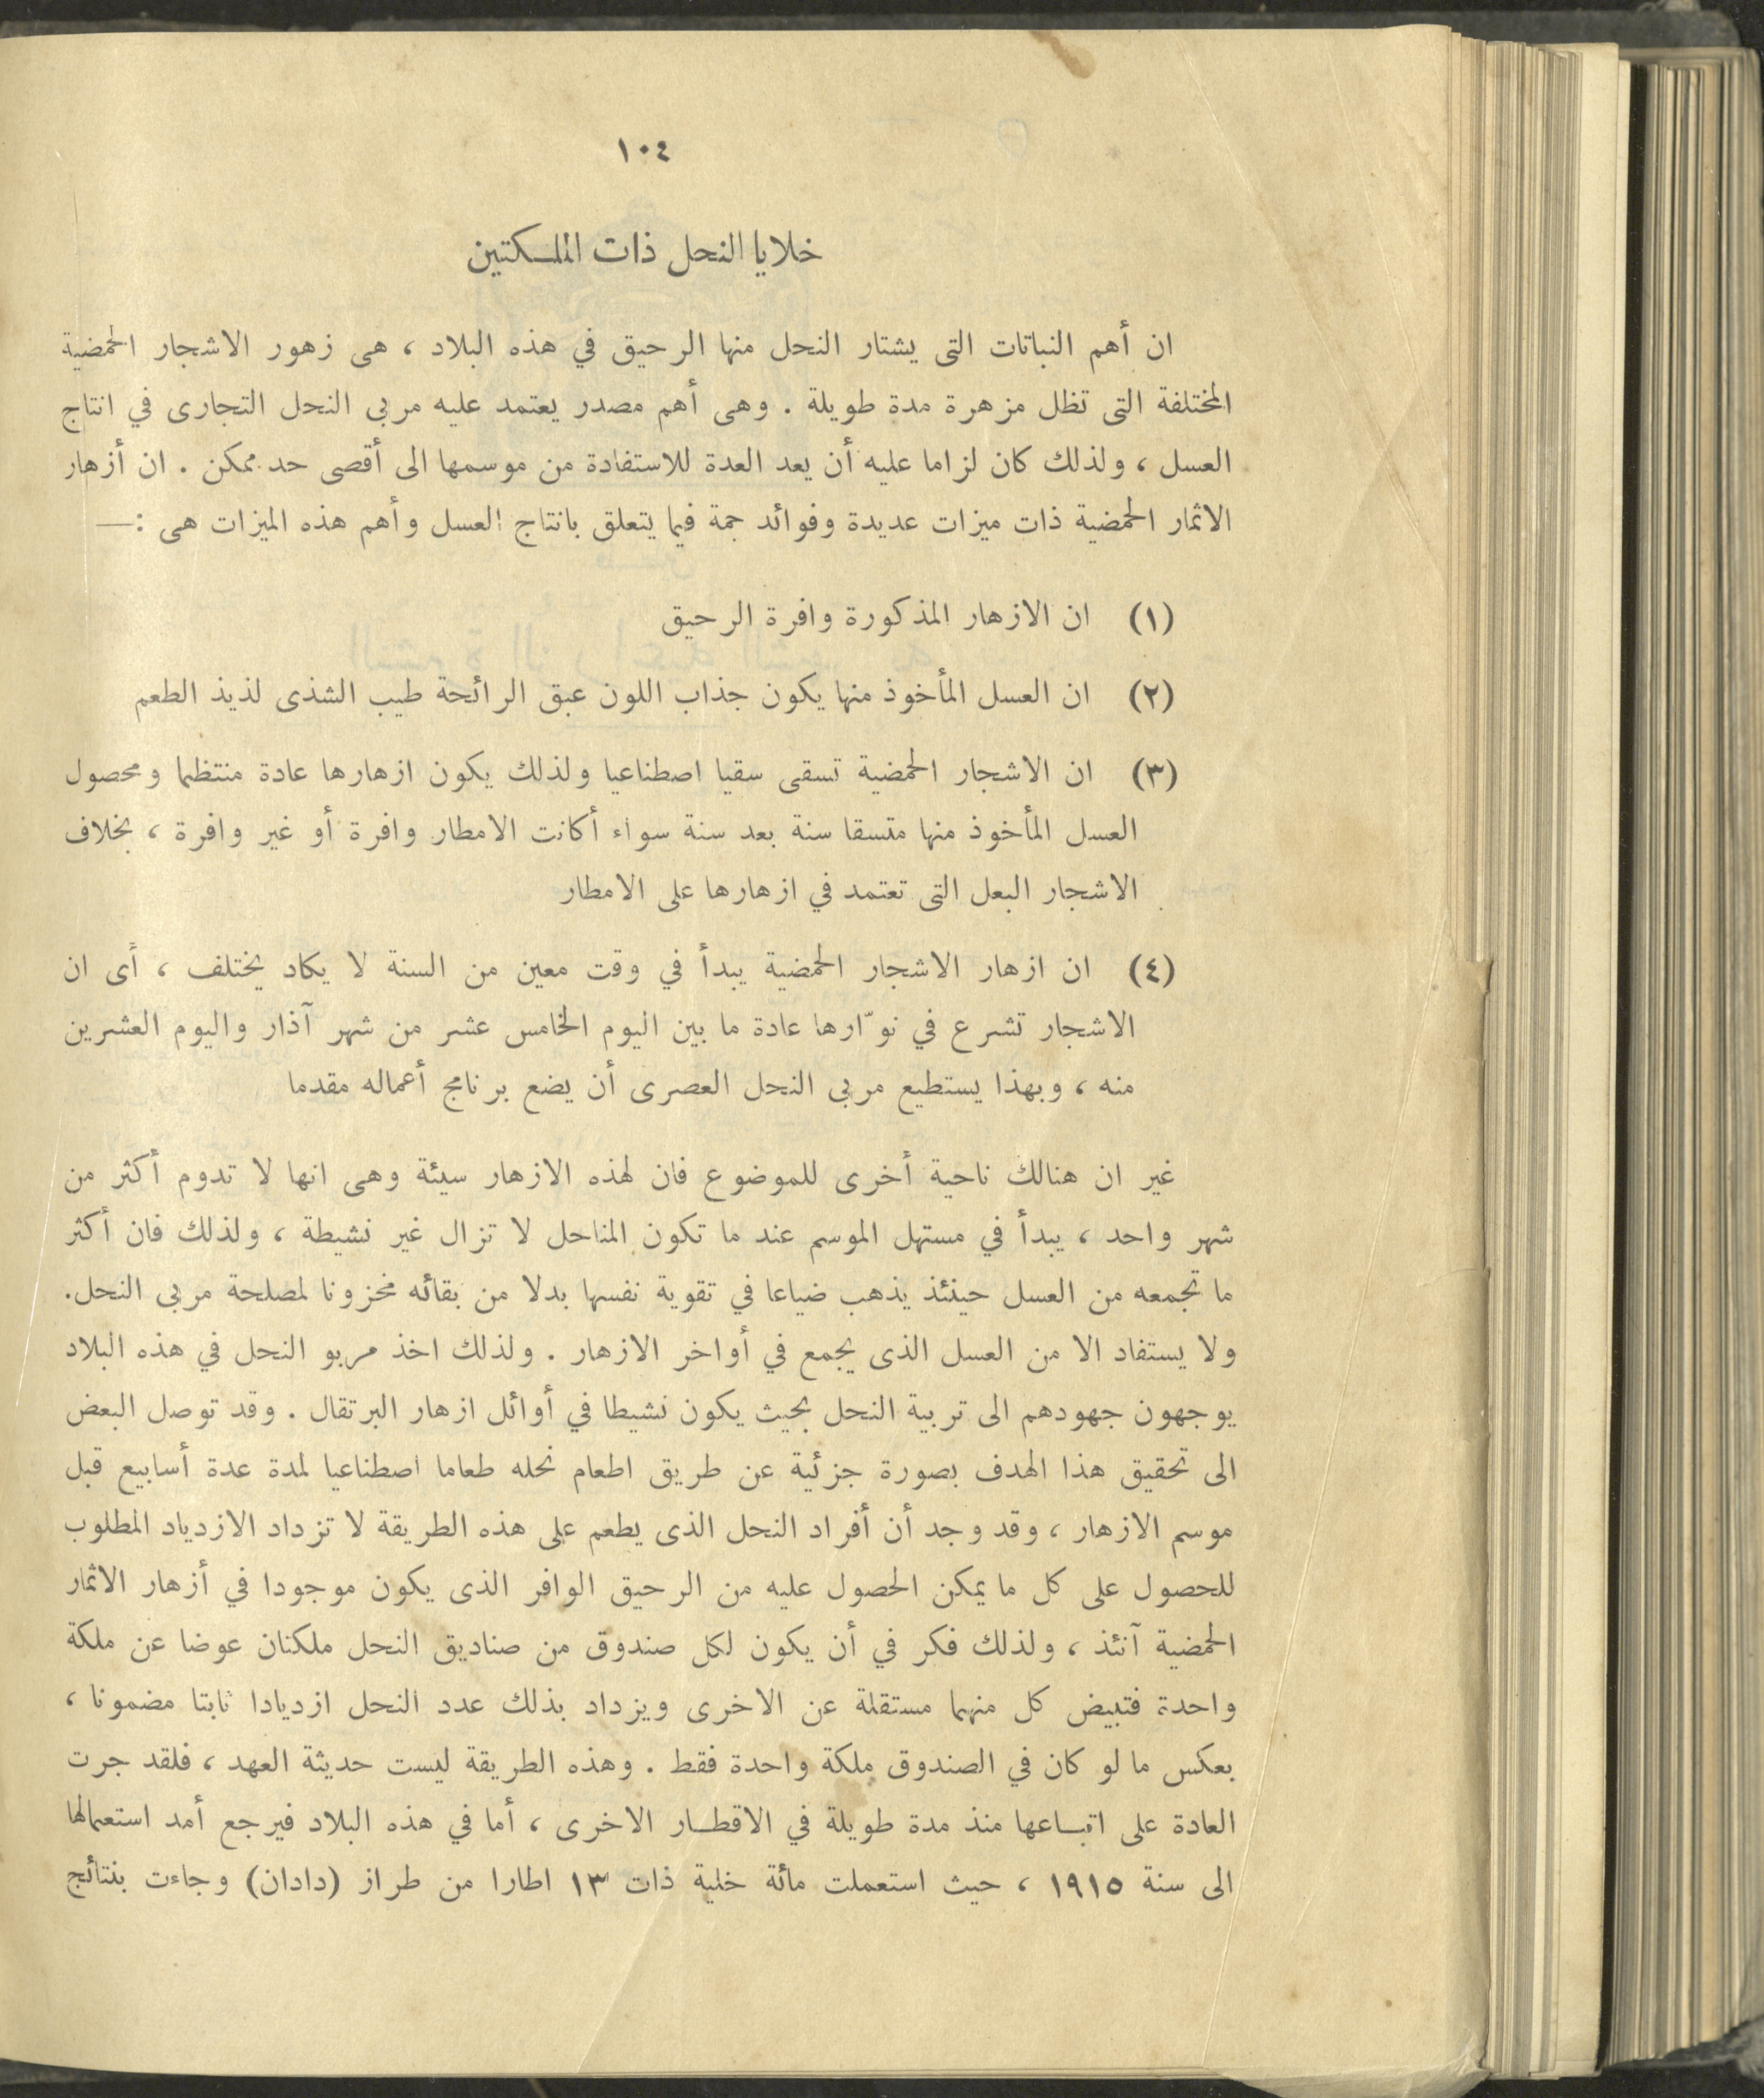 ١٠٤
خلايا النحل ذات الملكتين
ان أهم النباتات التى يشتار النحل منها الرحيق في هذه البلاد ، هى زهور الاشجار الحمضية
المختلفة التى تظل مزهرة مدة طويلة . وهى أهم مصدر يعتمد عليه مربى النحل التجارى في انتاج
العسل ، ولذلك كان لزاما عليه أن يعد العدة للاستفادة من موسمها الى أقصى حد ممكن . ان أزهار
الاثمار الحمضية ذات ميزات عديدة وفوائد جمة فيما يتعلق بانتاج العسل وأهم هذه الميزات هى :—
(١) ان الازهار المذكورة وافرة الرحيق
(٢) ان العسل المأخوذ منها يكون جذاب اللون عبق الرائحة طيب الشذى لذيذ الطعم
(٣) ان الاشجار الحمضية تسقى سقيا اصطناعيا ولذلك يكون ازهارها عادة منتظما ومحصول
العسل المأخوذ منها متسقا سنة بعد سنة سواء أكانت الامطار وافرة أو غير وافرة ، بخلاف
الاشجار البعل التى تعتمد في ازهارها على الامطار
(٤) ان ازهار الاشجار الحمضية يبدأ في وقت معين من السنة لا يكاد يختلف ، أى ان
الاشجار تشرع في نوّارها عادة ما بين اليوم الخامس عشر من شهر آذار واليوم العشرين
منه ، وبهذا يستطيع مربى النحل العصرى أن يضع برنامج أعماله مقدما
غير ان هنالك ناحية أخرى للموضوع فان لهذه الازهار سيئة وهى انها لا تدوم أكثر من
شهر واحد ، يبدأ في مستهل الموسم عند ما تكون المناحل لا تزال غير نشيطة ، ولذلك فان أكثر
ما تجمعه من العسل حينئذ يذهب ضياعا في تقوية نفسها بدلا من بقائه مخزونا لمصلحة مربى النحل.
ولا يستفاد الا من العسل الذى يجمع في أواخر الازهار . ولذلك اخذ مربو النحل في هذه البلاد
يوجهون جهودهم الى تربية النحل بحيث يكون نشيطا في أوائل ازهار البرتقال . وقد توصل البعض
الى تحقيق هذا الهدف بصورة جزئية عن طريق اطعام نحله طعاما اصطناعيا لمدة عدة أسابيع قبل
موسم الازهار ، وقد وجد أن أفراد النحل الذى يطعم على هذه الطريقة لا تزداد الازدياد المطلوب
للحصول على كل ما يمكن الحصول عليه من الرحيق الوافر الذى يكون موجودا في أزهار الاثمار
الحمضية آنئذ ، ولذلك فكر في أن يكون لكل صندوق من صناديق النحل ملكتان عوضا عن ملكة
واحدة فتبيض كل منهما مستقلة عن الاخرى ويزداد بذلك عدد النحل ازديادا ثابتا مضمونا ،
بعكس ما لو كان في الصندوق ملكة واحدة فقط . وهذه الطريقة ليست حديثة العهد ، فلقد جرت
العادة على اتبـاعها منذ مدة طويلة في الاقطـار الاخرى ، أما في هذه البلاد فيرجع أمد استعمالها
الى سنة ١٩١٥ ، حيث استعملت مائة خلية ذات ١٣ اطارا من طراز (دادان) وجاءت بنتائج